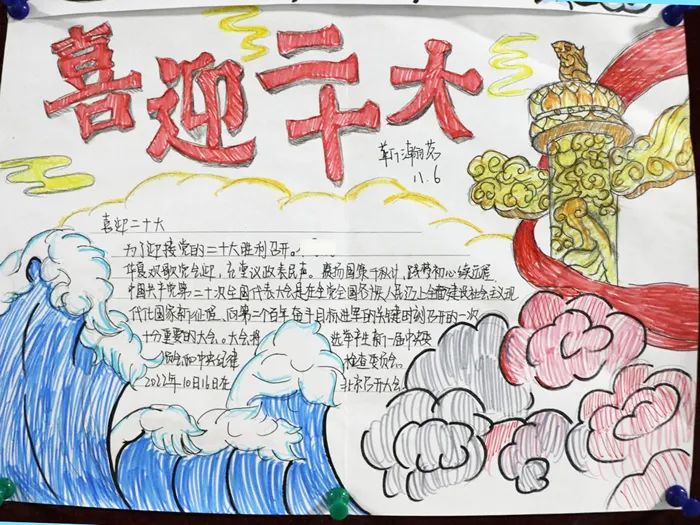 喜迎二十大
11.6
喜迎二十大
为了迎接党的二十大胜利召开。
华夏欢歌党会迎,在堂议政表民声。展场国集千秋计,践梦初心续远程
中国共产党第二十次全国代表大会是在全党全国各族人民迈上全面建设社会主义现
代化国家新征程、向第二个百年奋斗目标进军的关键时刻召开的一次
十分重要的大会。大会将 选举产生新一届中央委
员会和中央纪律 检查委员会。
2022年10月16日在 北京召开大会